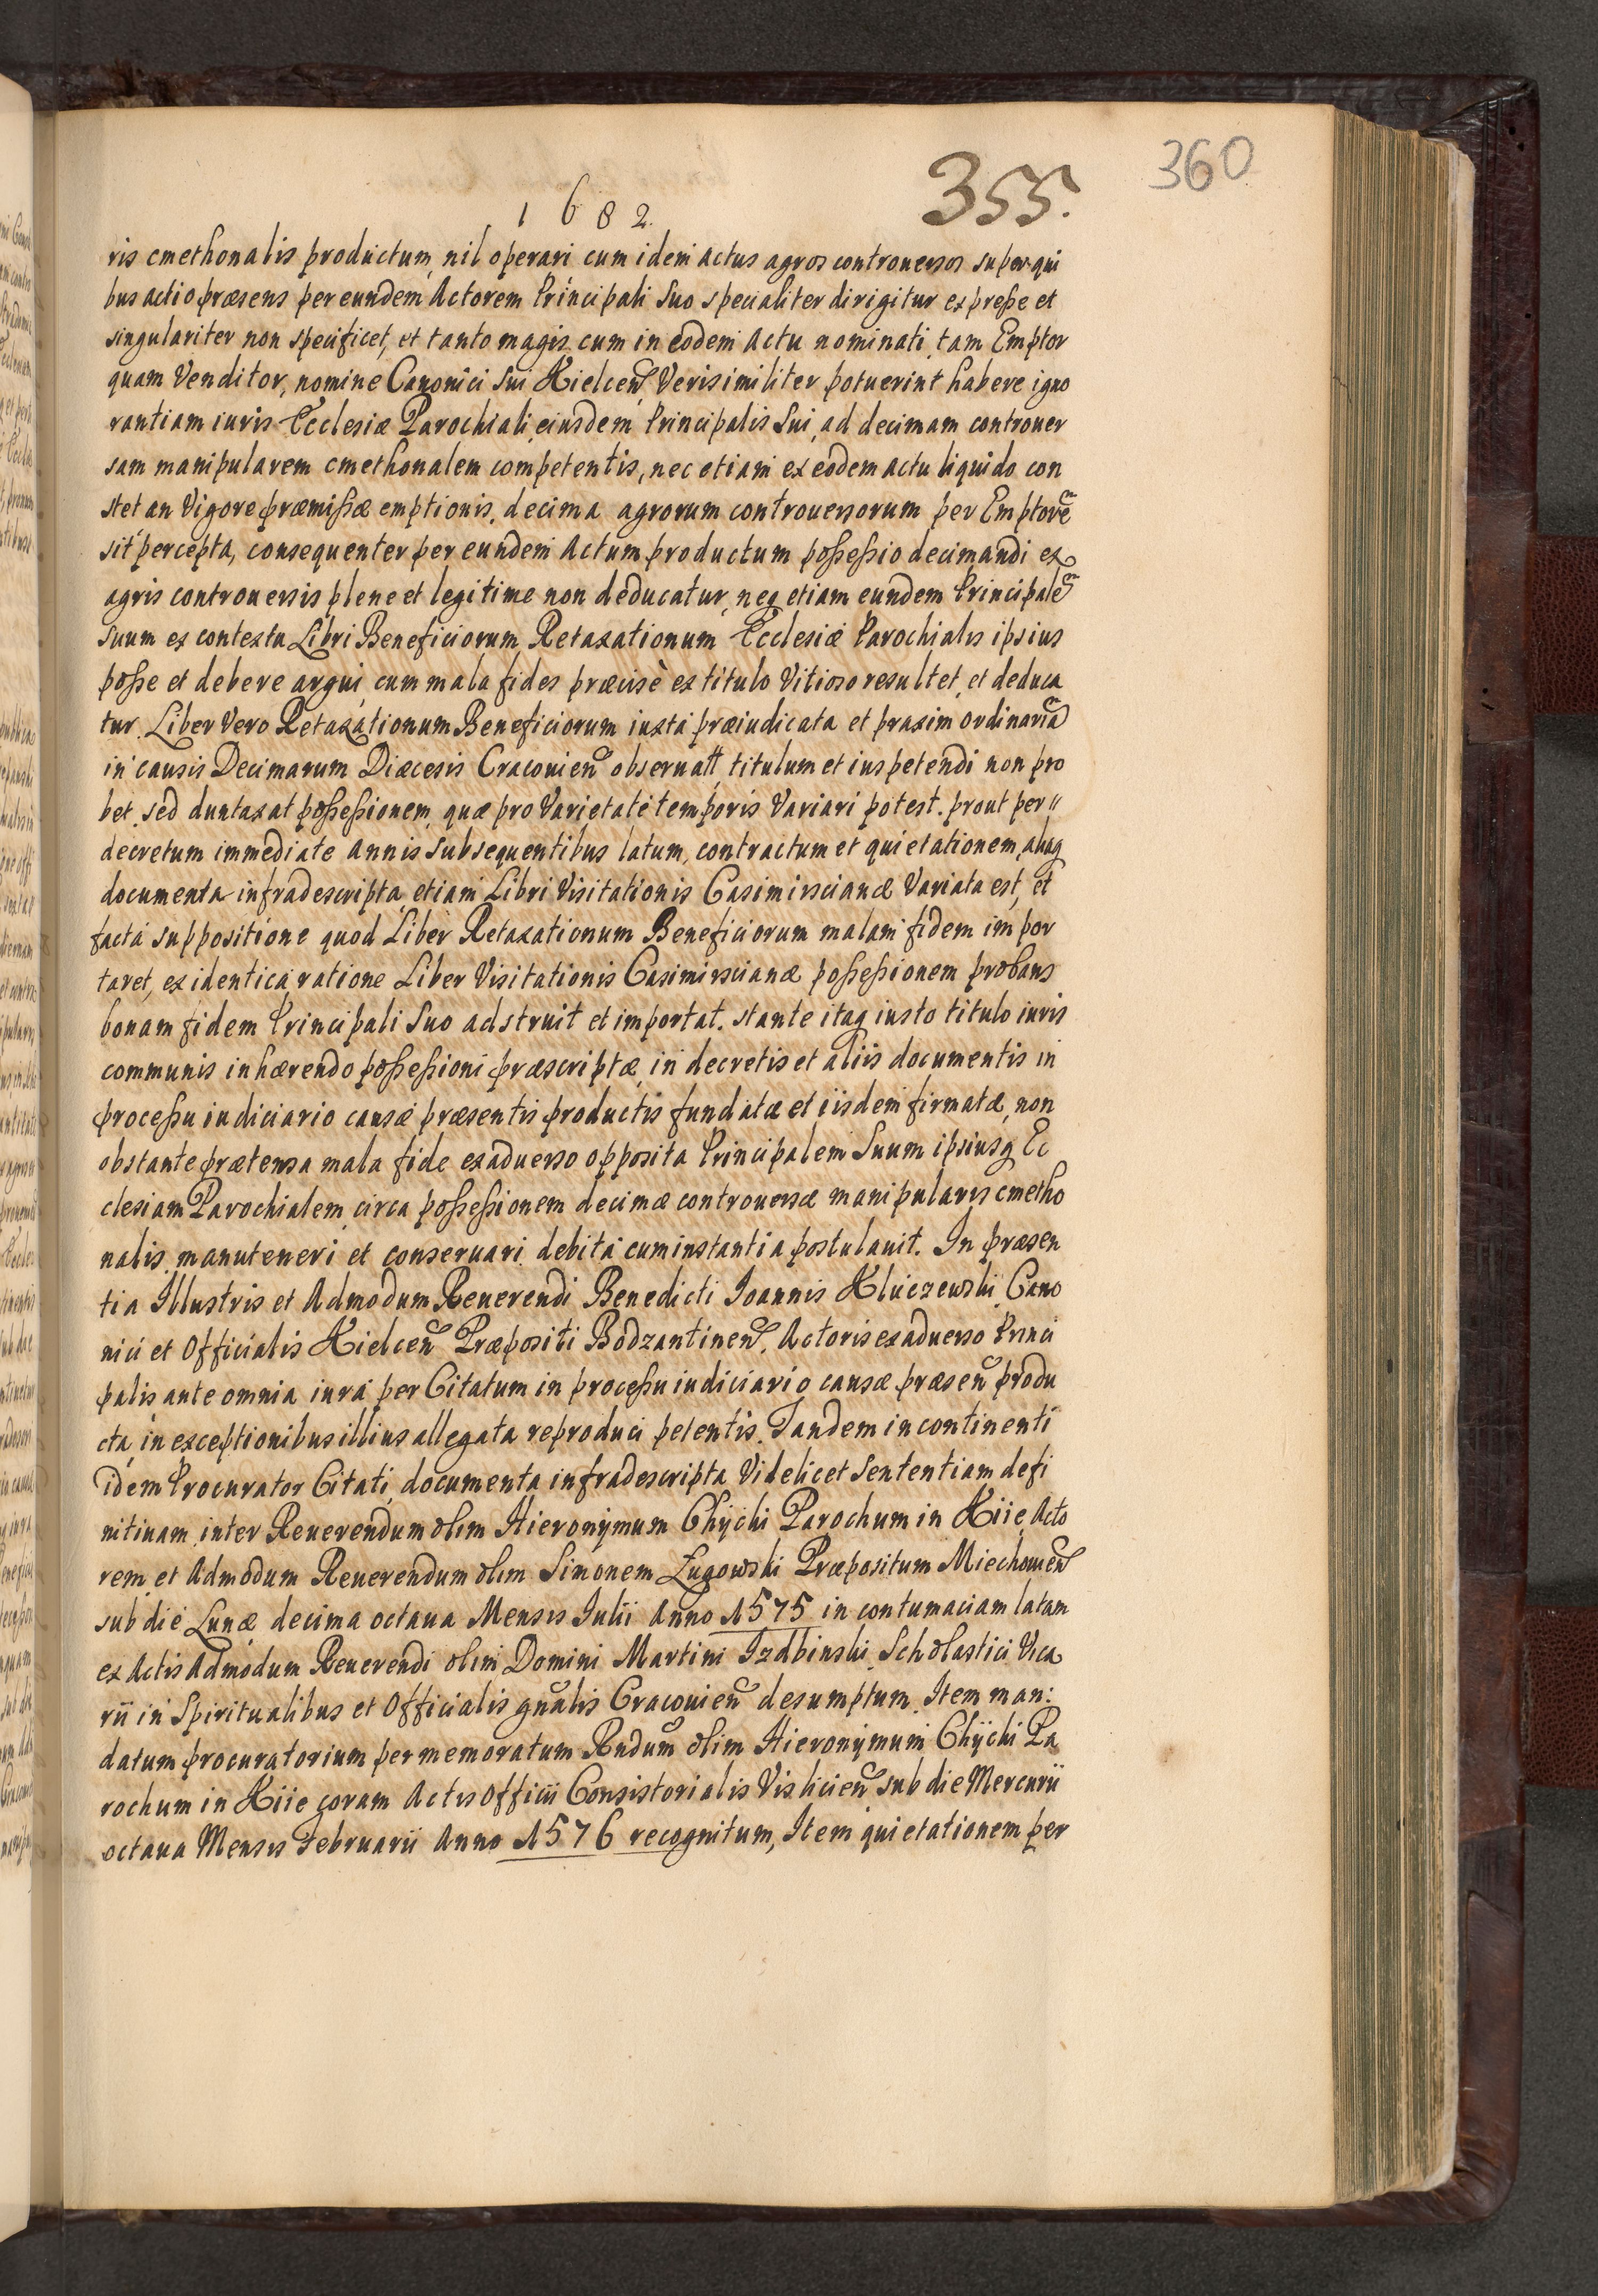 360
355.
1682.
ris cmethonalis productum, nil operari cum idem actus agros controuersos super qui
bus actio præsens per eundem Actorem Principali Suo specialiter dirigitur expreße et
singulariter non specificet, et tanto magis cum in eodem Actu nominati, tam Emptor
quam Venditor, nomine Canonici sui Kielceñ Verisimiliter potuerint habere igno
rantiam iuris Ecclesiæ Parochiali eiusdem Principalis Sui, ad decimam controuer
sam manipularem cmethonalem competentis, nec etiam ex eodem actu liquido con
stet an Vigore præmißæ emptionis, decima agrorum controuersorum per Emptorẽ
sit percepta, consequenter per eundem Actum productum poßeßio decimandi ex
agris controuersis plene et legitime non deducatur, neq etiam eundem Principalẽ
suum ex contextu Libri Beneficiorum Retaxationum Ecclesiæ Parochialis ipsius
poße et debere argui, cum mala fides præcisè ex titulo Vitioso resultet, et deduca
tur. Liber Vero Retaxationum Beneficiorum iuxta præiudicata et praxim ordinariã
in causis Decimarum Diæcesis Cracouieñ obseruatt titulum et ius petendi non pro
bet, sed duntaxat poßeßionem, quæ pro Varietate temporis Variari potest. prout per //
decretum immediate Annis subsequentibus latum, contractum et quietationem, aliaq
documenta infradescripta, etiam Libri Visitationis Casimirscianæ Variata est, et
facta suppositione quod Liber Retaxationum Beneficiorum malam fidem impor
taret, ex identica ratione Liber Visitationis Casimirscianæ poßeßionem probans
bonam fidem Principali Suo adstruit et importat. stante itaq iusto titulo iuris
communis inhærendo poßeßioni præscriptæ, in decretis et aliis documentis in
proceßu iudiciario causæ præsentis productis fundatæ et iisdem firmatæ, non
obstante prætensa mala fide exaduerso opposita Principalem Suum ipsiusq Ec
clesiam Parochialem, circa poßeßionem decimæ controuersæ manipularis cmetho
nalis, manuteneri et conseruari debita cum instantia postulauit. In præsen
tia Illustris et Admodum Reuerendi Benedicti Ioannis Kluczewski Cano
nici et Officialis Kielceñ Præpositi Bodzantineñ, Actoris exaduerso Princi
palis ante omnia iura per Citatum in proceßu iudiciario causæ præseñ produ
cta, in exceptionibus illius allegata reproduci petentis. Tandem in continenti
idem Procurator Citati, documenta infradescripta Videlicet Sententiam defi
nitiuam inter Reuerendum olim Hieronÿmum Chÿchi Parochum in Kiie Acto
rem et Admodum Reuerendum olim Simonem Ługowski Præpositum Miechouieñ
sub die Lunæ decima octaua Mensis Iulii Anno 1575 in contumaciam latam
ex Actis Admodum Reuerendi olim Domini Martini Izdbinski Scholastici Vica
rii in Spiritualibus et Officialis gnalis Cracouieñ desumptum. Item man:
datum procuratorium per memoratum Rndum olim Hieronÿmum Chÿchi Pa
rochum in Kiie coram Actis Officii Consistorialis Visliceñ sub die Mercurii
octaua Mensis Februarii Anno 1576 recognitum, Item quietationem per